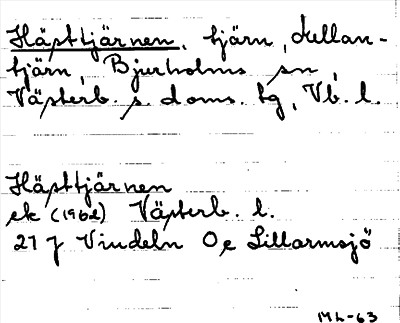 Hästtjärnen, tjärn, Mellan-
tjärn, Bjurholms sn,
Västerb. s. doms. tg, Vb. l.
Hästtjärnen
ek (1962) Västerb. l.
21 J Vindeln Oe Lillarmsjö
ML-63